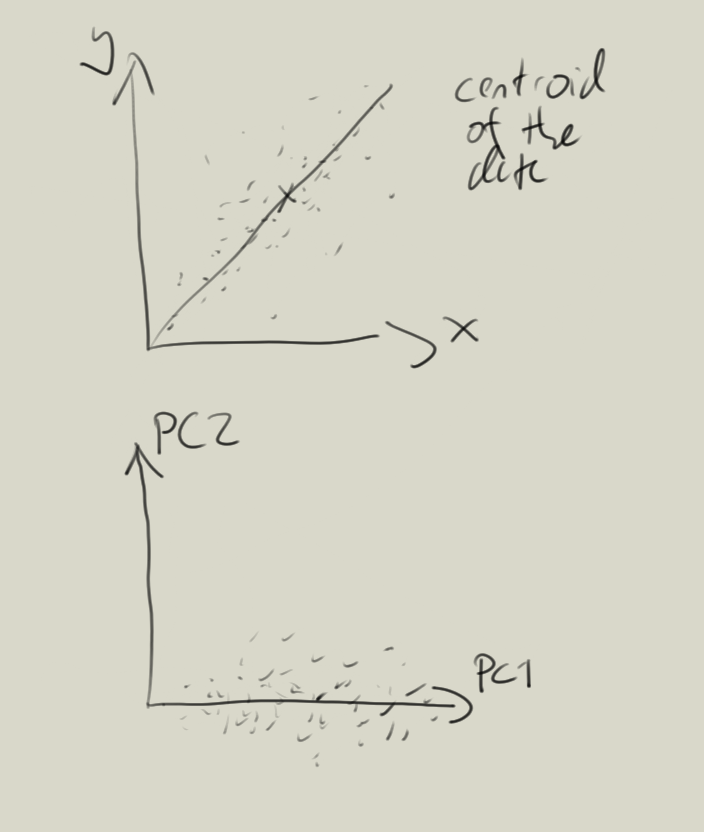 y
centroid
of the
data
x
PC2
PC1